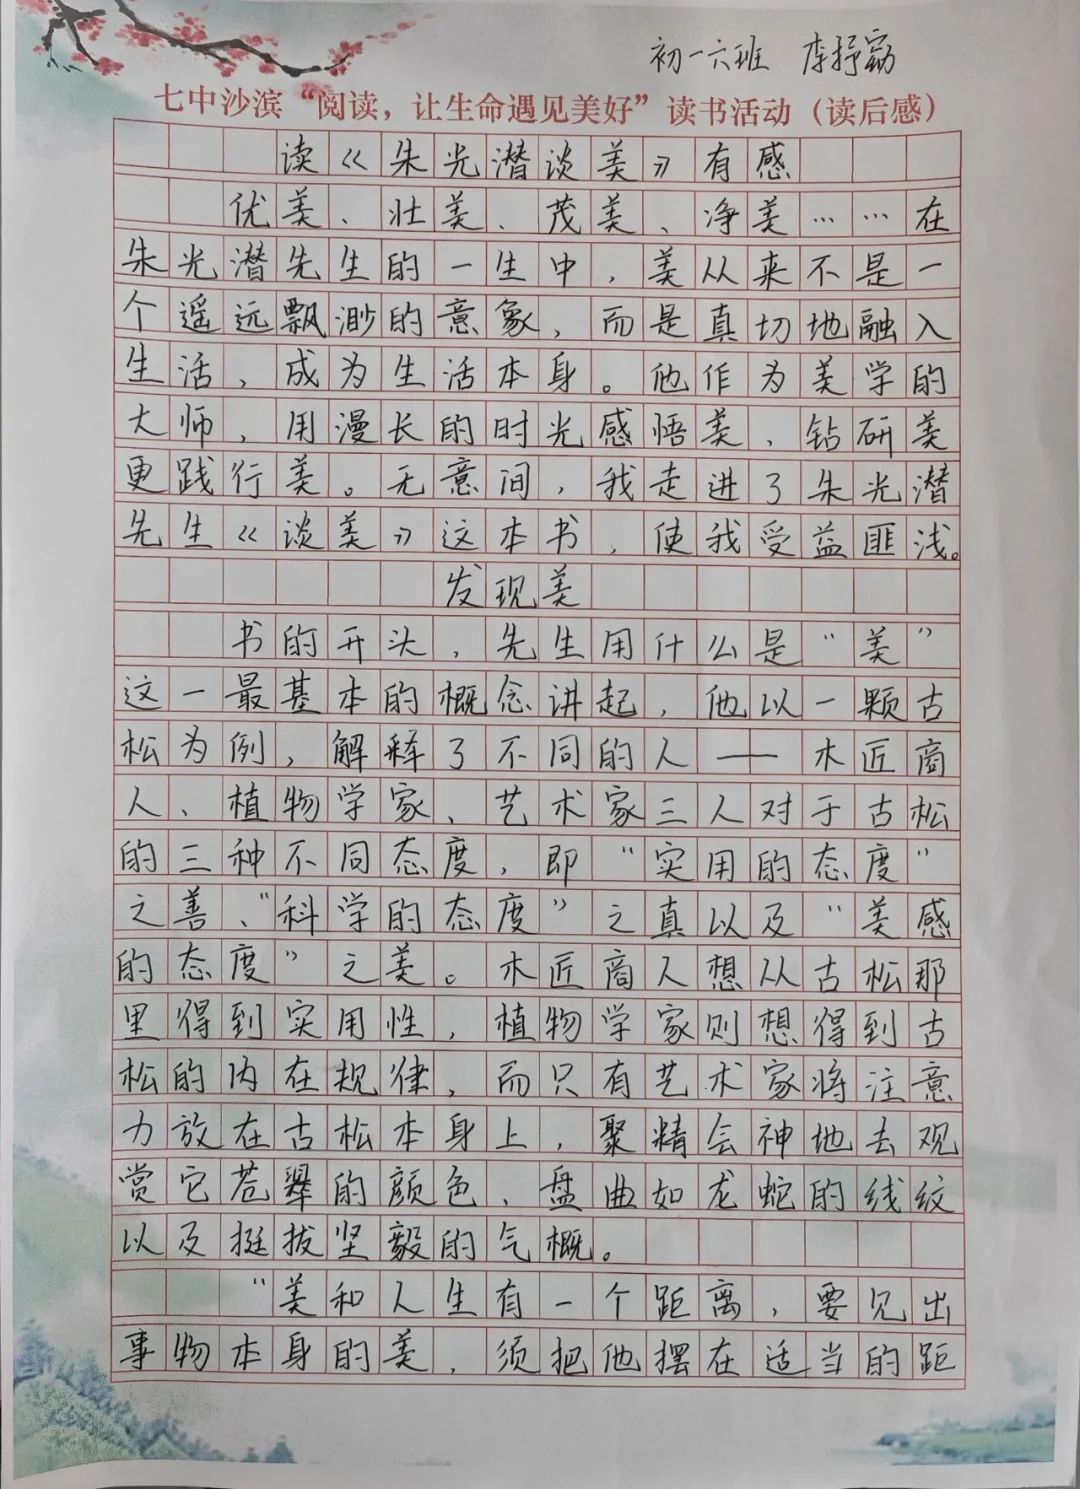 初一六班 李抒勐
七中沙滨“阅读，让生命遇见美好”读书活动（读后感）
读《朱光潜谈美》有感
优美、壮美、茂美、净美……在
朱光潜先生的一生中，美从来不是一
个遥远飘渺的意象，而是真切地融入
生活，成为生活本身。他作为美学的
大师，用漫长的时光感悟美、钻研美
更践行美。无意间，我走进了朱光潜
先生《谈美》这本书，使我受益匪浅。
发现美
书的开头，先生用什么是“美”
这一最基本的概念讲起，他以一颗古
松为例，解释了不同的人——木匠商
人、植物学家、艺术家三人对于古松
的三种不同态度，即“实用的态度”
之善、“科学的态度”之真以及“美感
的态度”之美。木匠商人想从古松那
里得到实用性，植物学家则想得到古
松的内在规律，而只有艺术家将注意
力放在古松本身上，聚精会神地去观
赏它苍翠的颜色、盘曲如龙蛇的线纹
以及挺拔坚毅的气概。
“美和人生有一个距离，要见出
事物本身的美，须把他摆在适当的距